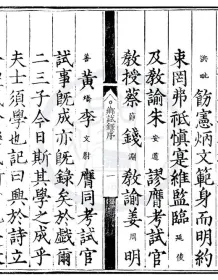 洪 飭憲炳文範身而明約
束罔弗祗慎寔維監臨
及教諭朱 謬膺考試官
教授蔡 錢 教諭姜 周 明
鄉試錄序 一
善 黃 李 文 膺同考試官
試事既成亦既錄矣於戲爾
二三子今日斯其學之成乎
夫士須學也記曰興於詩立